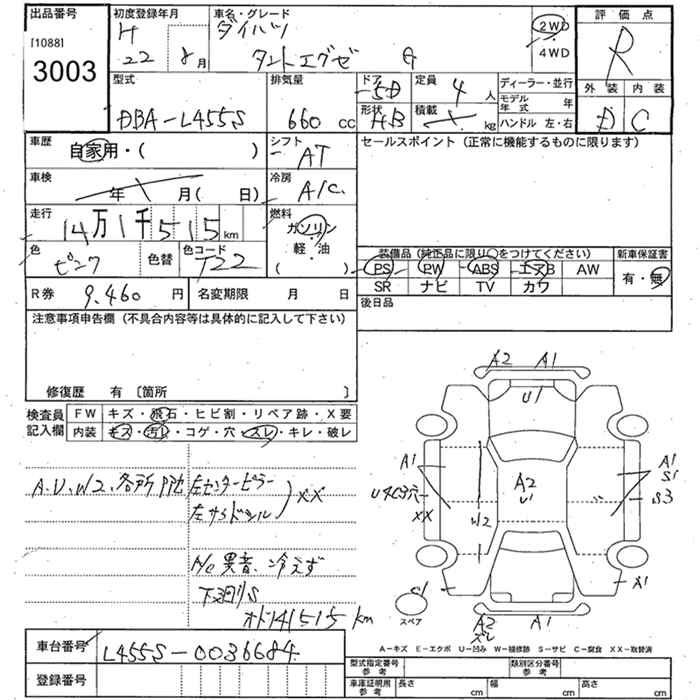 出品番号
[1088]
3003
初度登録年月
H 22 8月
車名・グレード
ダイハツ
タントエグゼ G
2WD
4WD
評価点
R
外装 内装
D C
型式
DBA-L455S
排気量
660 cc
ドア
5D
形状
H.B
定員
4 人
積載
kg
ディーラー・並行
モデル年式 年
ハンドル 左・右
車歴
自家用・( )
シフト
AT
セールスポイント (正常に機能するものに限ります)
車検
年 月( 日)
冷房
A/C
走行
14万1千515 km
燃料
ガソリン
軽・油
( )
色
ピンク
色替
色コード
T22
装備品 (純正品に限り○をつけてください)
PS PW ABS エアB AW
SR ナビ TV カワ
新車保証書
有・無
R券 9,460 円
名変期限 月 日
後日品
注意事項申告欄 (不具合内容等は具体的に記入して下さい)
修復歴 有 〔箇所 〕
検査員記入欄
FW キズ・飛石・ヒビ割・リペア跡・X要
内装 キズ・汚レ・コゲ・穴・スレ・キレ・破レ
A.U.W2.各所 凹
左センターピラー
左サSドシル
XX
A/C 異音、冷えず
下廻りS
オド141515km
A2 A1
U1
A1
U4C3穴
XX
W2
A2
U1
A1
S1
S3
A1
S1
スペア
A2
スレ
A1
A-キズ E-エクボ U-凹み W-補修跡 S-サビ C-腐食 XX-取替済
車台番号
L455S-0036684
登録番号
型式指定番号
参考
類別区分番号
参考
車庫証明用
参考
長さ cm
幅 cm
高さ cm